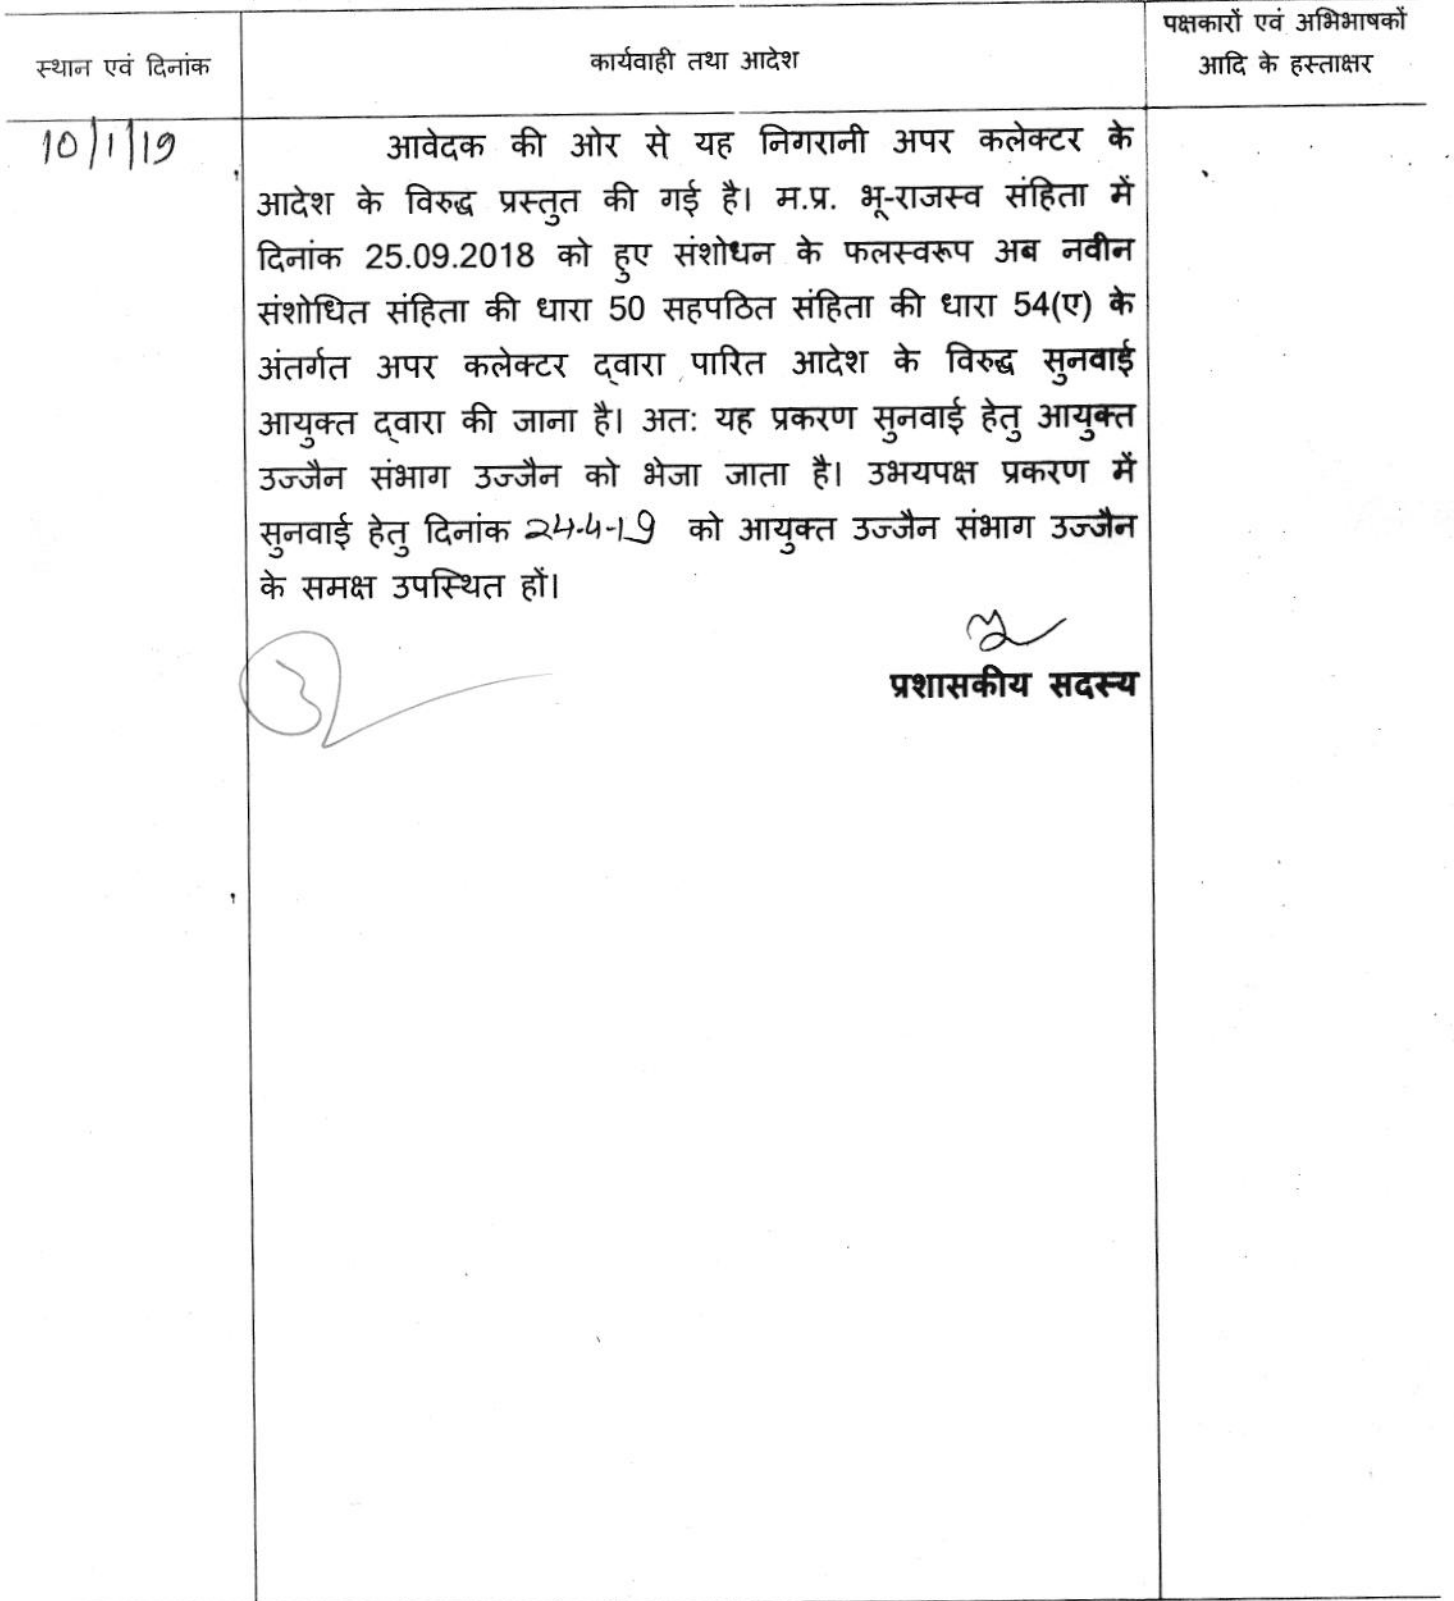 स्थान एवं दिनांक
कार्यवाही तथा आदेश
पक्षकारों एवं अभिभाषकों
आदि के हस्ताक्षर
10/1/19
आवेदक की ओर से यह निगरानी अपर कलेक्टर के
आदेश के विरुद्ध प्रस्तुत की गई है। म.प्र. भू-राजस्व संहिता में
दिनांक 25.09.2018 को हुए संशोधन के फलस्वरूप अब नवीन
संशोधित संहिता की धारा 50 सहपठित संहिता की धारा 54(ए) के
अंतर्गत अपर कलेक्टर द्वारा पारित आदेश के विरुद्ध सुनवाई
आयुक्त द्वारा की जाना है। अतः यह प्रकरण सुनवाई हेतु आयुक्त
उज्जैन संभाग उज्जैन को भेजा जाता है। उभयपक्ष प्रकरण में
सुनवाई हेतु दिनांक 24-4-19 को आयुक्त उज्जैन संभाग उज्जैन
के समक्ष उपस्थित हों।
प्रशासकीय सदस्य